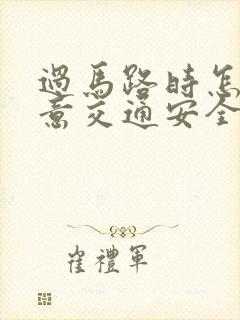 過馬路時怎
意交通安全
崔禮軍